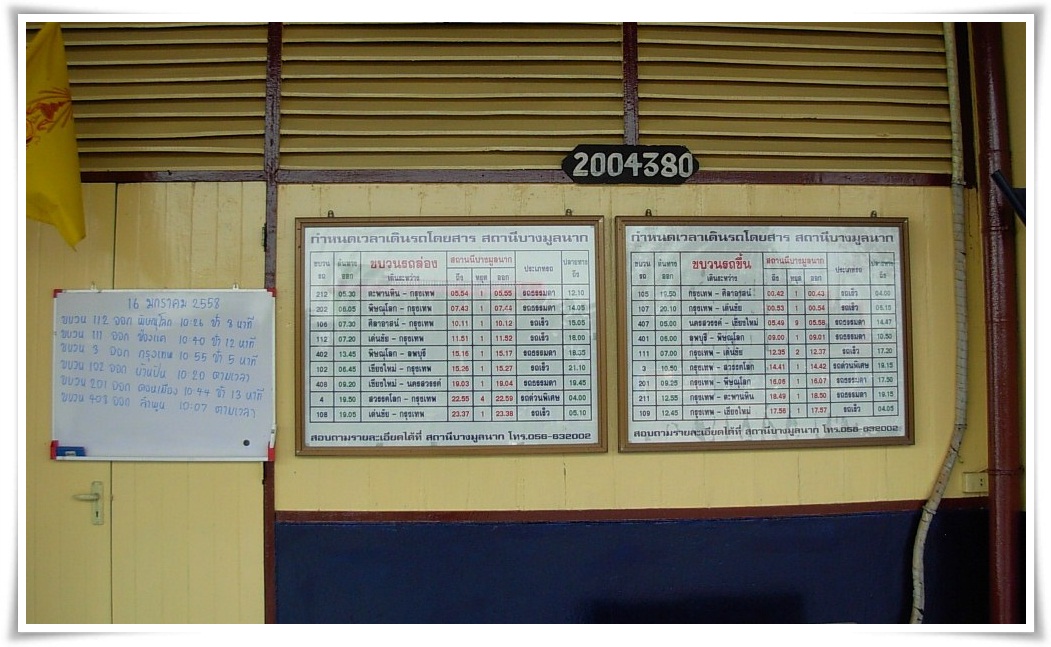 2004380
16 มกราคม 2558
ขบวน 112 ออก พิษณุโลก 10:26 ช้า 8 นาที
ขบวน 111 ออก ช่องแค 10:40 ช้า 12 นาที
ขบวน 3 ออก กรุงเทพ 10:55 ช้า 5 นาที
ขบวน 102 ออก บ้านปิน 10:20 ตามเวลา
ขบวน 201 ออก ดอนเมือง 10:44 ช้า 13 นาที
ขบวน 408 ออก ลำพูน 10:07 ตามเวลา
กำหนดเวลาเดินรถโดยสาร สถานีบางมูลนาก
ขบวนรถ ต้นทางออก ขบวนรถล่อง เดินระหว่าง สถานีบางมูลนาก ถึง หยุด ออก ประเภทรถ ปลายทางถึง
212 05.30 ตะพานหิน - กรุงเทพ 05.54 1 05.55 รถธรรมดา 12.10
202 06.05 พิษณุโลก - กรุงเทพ 07.43 1 07.44 รถธรรมดา 14.05
106 07.30 ศิลาอาสน์ - กรุงเทพ 10.11 1 10.12 รถเร็ว 15.05
112 07.20 เด่นชัย - กรุงเทพ 11.51 1 11.52 รถเร็ว 18.00
402 13.45 พิษณุโลก - ลพบุรี 15.16 1 15.17 รถธรรมดา 18.35
102 06.45 เชียงใหม่ - กรุงเทพ 15.26 1 15.27 รถเร็ว 21.10
408 09.20 เชียงใหม่ - นครสวรรค์ 19.03 1 19.04 รถธรรมดา 19.45
4 19.50 สวรรคโลก - กรุงเทพ 22.55 4 22.59 รถด่วนพิเศษ 04.00
108 19.05 เด่นชัย - กรุงเทพ 23.37 1 23.38 รถเร็ว 05.10
สอบถามรายละเอียดได้ที่ สถานีบางมูลนาก โทร.056-632002
กำหนดเวลาเดินรถโดยสาร สถานีบางมูลนาก
ขบวนรถ ต้นทางออก ขบวนรถขึ้น เดินระหว่าง สถานีบางมูลนาก ถึง หยุด ออก ประเภทรถ ปลายทางถึง
105 กรุงเทพ - ศิลาอาสน์ 00.42 1 00.43 รถเร็ว 04.00
107 20.10 กรุงเทพ - เด่นชัย 00.53 1 00.54 รถเร็ว 05.15
407 05.00 นครสวรรค์ - เชียงใหม่ 05.49 9 05.58 รถธรรมดา
401 06.00 ลพบุรี - พิษณุโลก 09.00 1 09.01 รถธรรมดา 10.50
111 07.00 กรุงเทพ - เด่นชัย 12.35 2 12.37 รถเร็ว 17.20
3 10.50 กรุงเทพ - สวรรคโลก 14.41 1 14.42 รถด่วนพิเศษ 19.15
201 09.25 กรุงเทพ - พิษณุโลก 16.06 1 16.07 รถธรรมดา 17.50
211 12.55 กรุงเทพ - ตะพานหิน 18.49 1 18.50 รถธรรมดา 19.15
109 12.45 กรุงเทพ - เชียงใหม่ 17.56 1 17.57 รถเร็ว 04.05
สอบถามรายละเอียดได้ที่ สถานีบางมูลนาก โทร.056-632002